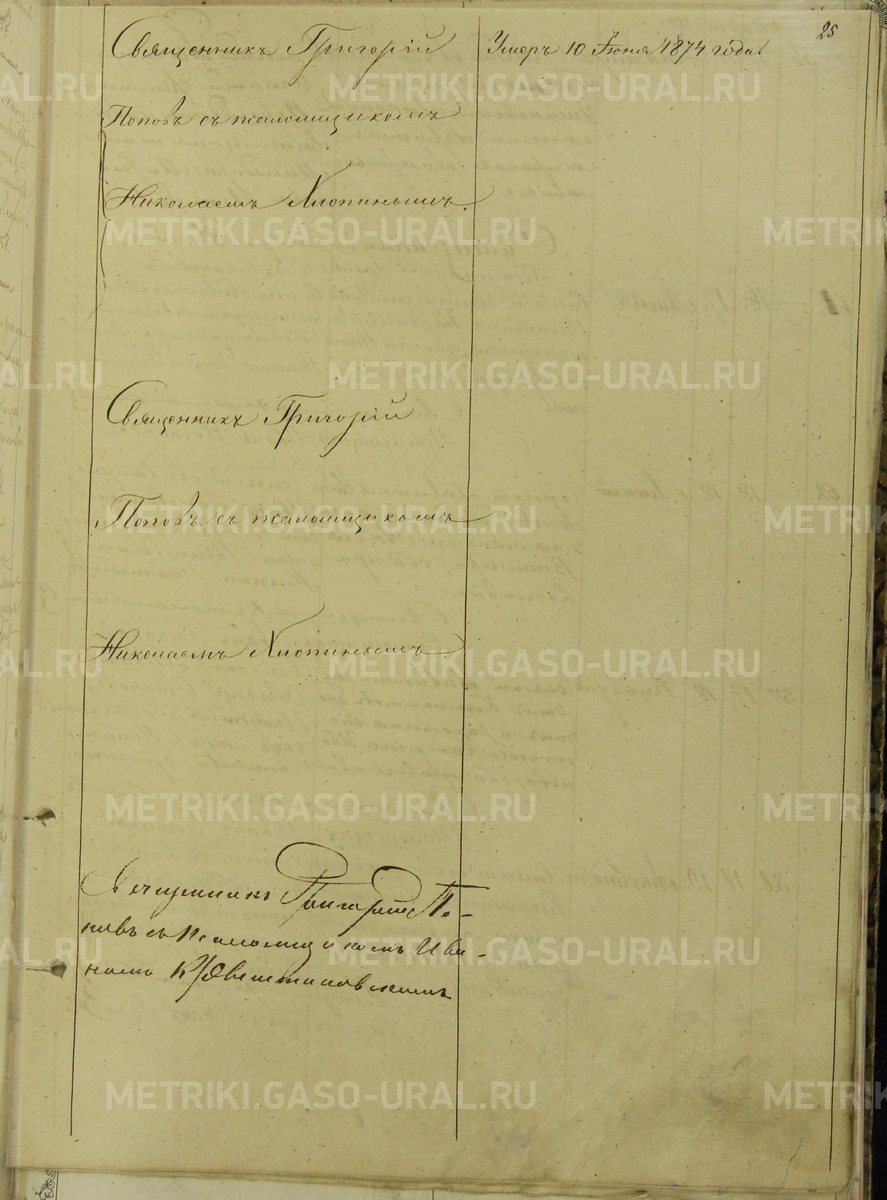 25
Священникъ Григорій
Умеръ 10 Іюня 1874 года.
Поповъ съ псаломщикомъ
Николаемъ Хлопинымъ.
Священникъ Григорій
Поповъ съ псаломщикомъ
Николаемъ Хлопинымъ.
Священникъ Григорій По-
повъ съ Псаломщикомъ Ива-
номъ
METRIKI.GASO-URAL.RU